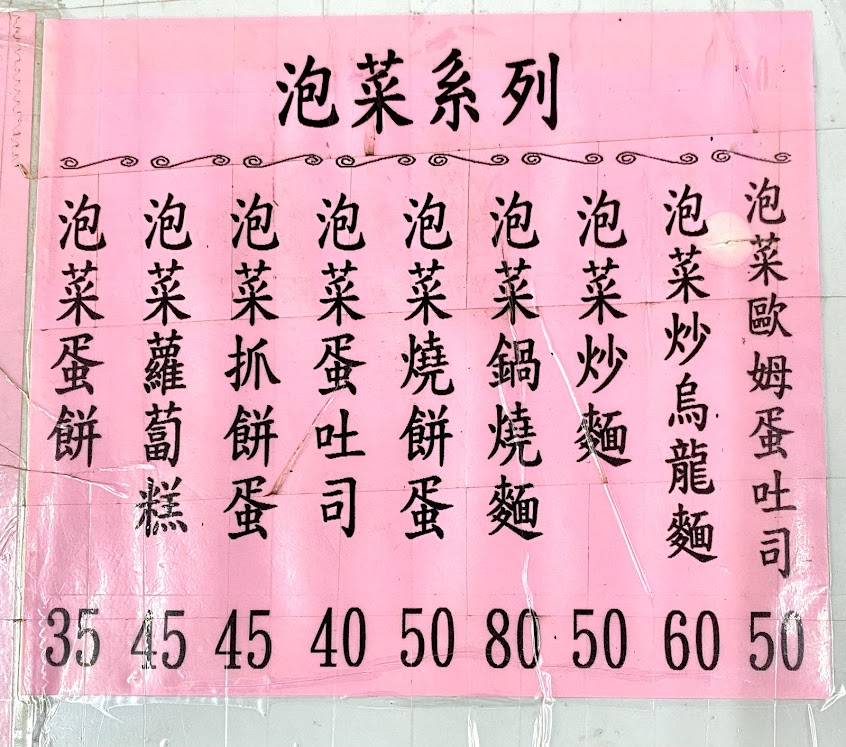 泡菜系列
泡菜歐姆蛋吐司 50
泡菜炒烏龍麵 60
泡菜炒麵 50
泡菜鍋燒麵 80
泡菜燒餅蛋 50
泡菜蛋吐司 40
泡菜抓餅蛋 45
泡菜蘿蔔糕 45
泡菜蛋餅 35